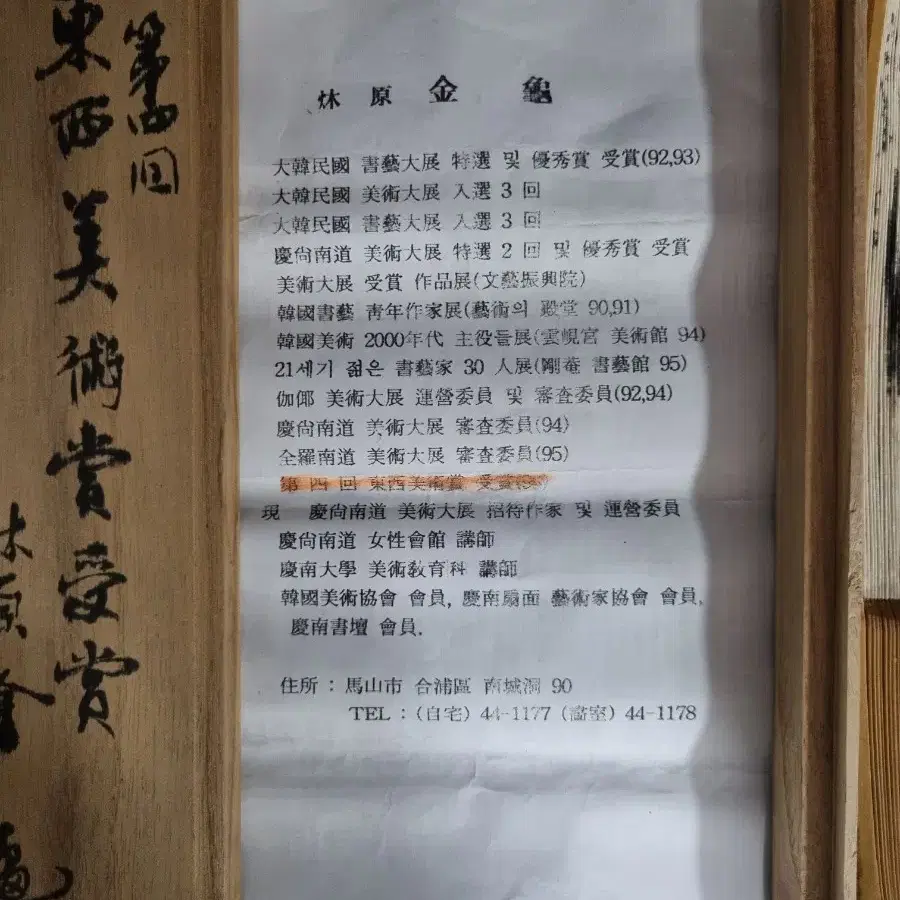 第四回
東西美術賞受賞
沐原金龜
沐原 金 龜
大韓民國 書藝大展 特選 및 優秀賞 受賞(92,93)
大韓民國 美術大展 入選 3 回
大韓民國 書藝大展 入選 3 回
慶尙南道 美術大展 特選 2 回 및 優秀賞 受賞
美術大展 受賞 作品展(文藝振興院)
韓國書藝 靑年作家展(藝術의 殿堂 90,91)
韓國美術 2000年代 主役들展(雲峴宮 美術館 94)
21세기 젊은 書藝家 30 人展(剛菴 書藝館 95)
伽倻 美術大展 運營委員 및 審査委員(92,94)
慶尙南道 美術大展 審査委員(94)
全羅南道 美術大展 審査委員(95)
第 四 回 東西美術賞 受賞
現 慶尙南道 美術大展 招待作家 및 運營委員
慶尙南道 女性會館 講師
慶南大學 美術敎育科 講師
韓國美術協會 會員, 慶南扇面 藝術家協會 會員,
慶南書壇 會員.
住所 : 馬山市 合浦區 南城洞 90
TEL : (自宅) 44-1177 (畵室) 44-1178